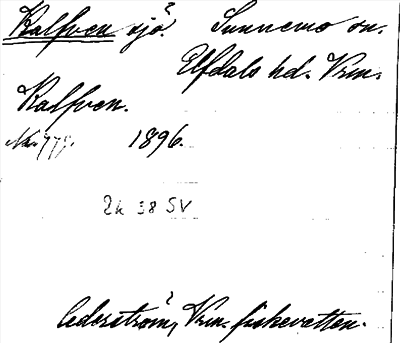 Kalfven sjö. Sunnemo sn.
Elfdals hd. Vrm.
Kalfven.
1896.
2h 38 SV
Cederström, Vrm. fiskevatten.